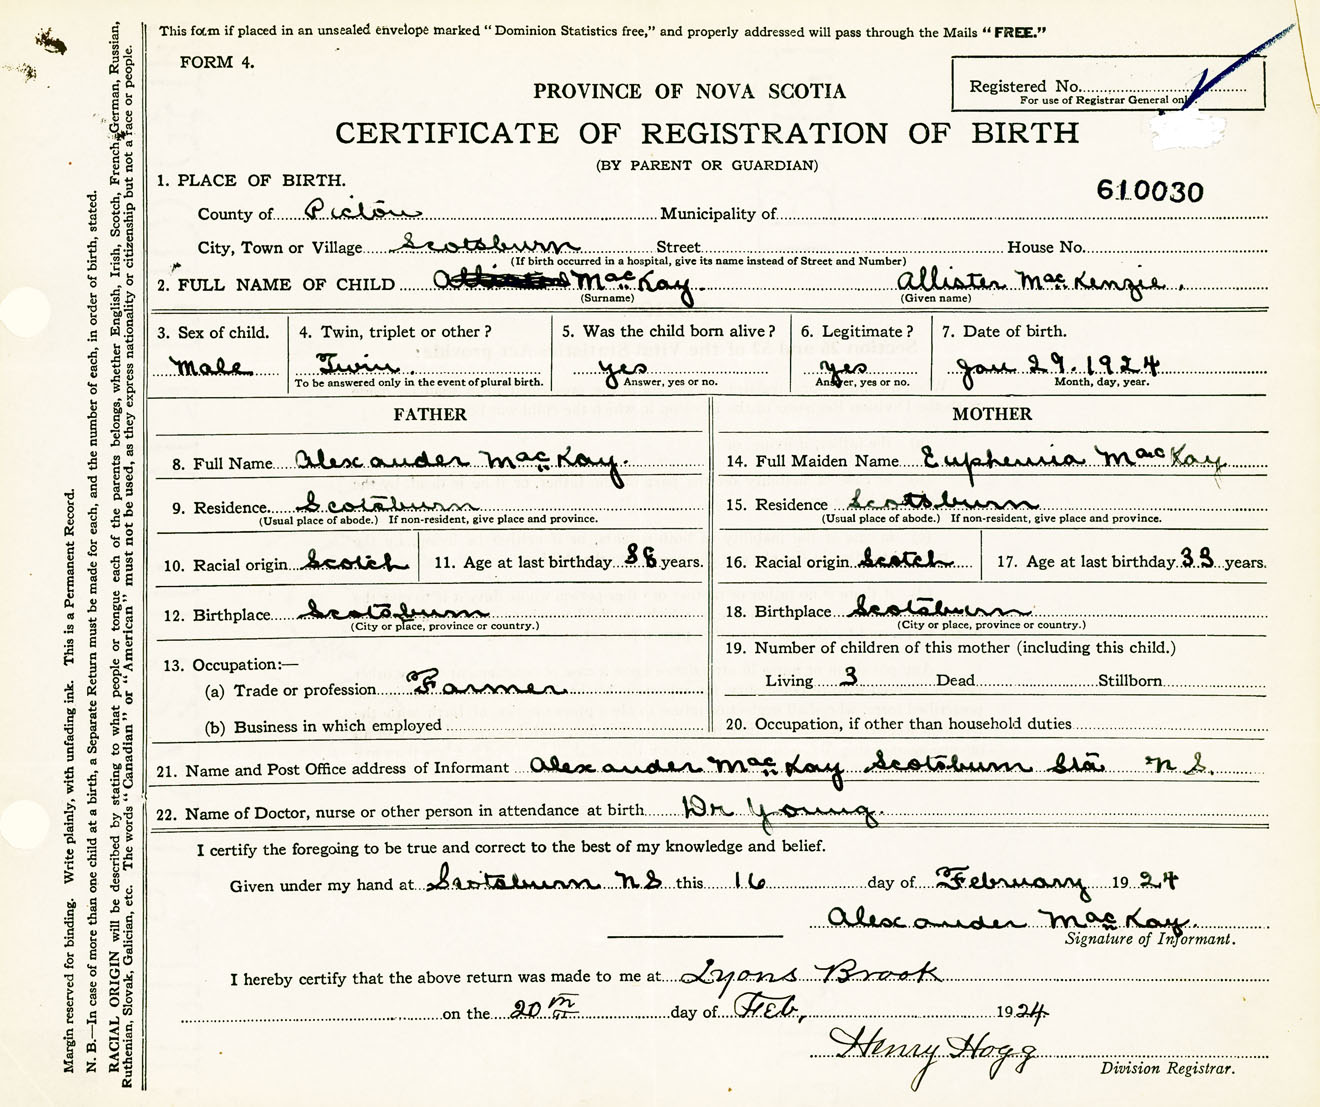 This form if placed in an unsealed envelope marked "Dominion Statistics free," and properly addressed will pass through the Mails "FREE."
FORM 4.
Registered No.
For use of Registrar General only.
PROVINCE OF NOVA SCOTIA
CERTIFICATE OF REGISTRATION OF BIRTH
(BY PARENT OR GUARDIAN)
610030
1. PLACE OF BIRTH.
County of Pictou Municipality of
City, Town or Village Scotsburn Street House No.
(If birth occurred in a hospital, give its name instead of Street and Number)
2. FULL NAME OF CHILD MacKay. Allister MacKenzie.
(Surname) (Given name)
3. Sex of child. 4. Twin, triplet or other? 5. Was the child born alive? 6. Legitimate? 7. Date of birth.
Male Twin. yes yes Jan 29. 1924
To be answered only in the event of plural birth. Answer, yes or no. Answer, yes or no. Month, day, year.
FATHER MOTHER
8. Full Name Alexander MacKay. 14. Full Maiden Name Euphemia MacKay
9. Residence Scotsburn 15. Residence Scotsburn
(Usual place of abode.) If non-resident, give place and province. (Usual place of abode.) If non-resident, give place and province.
10. Racial origin Scotch 11. Age at last birthday 38 years. 16. Racial origin Scotch 17. Age at last birthday 33 years.
12. Birthplace Scotsburn 18. Birthplace Scotsburn
(City or place, province or country.) (City or place, province or country.)
13. Occupation:— 19. Number of children of this mother (including this child.)
(a) Trade or profession Farmer Living 3 Dead Stillborn
(b) Business in which employed 20. Occupation, if other than household duties
21. Name and Post Office address of Informant Alexander MacKay Scotsburn Sta N S.
22. Name of Doctor, nurse or other person in attendance at birth Dr Young.
I certify the foregoing to be true and correct to the best of my knowledge and belief.
Given under my hand at Scotsburn N S this 16 day of February 1924
Alexander MacKay.
Signature of Informant.
I hereby certify that the above return was made to me at Lyons Brook
on the 20th day of Feb, 1924
Henry Hogg
Division Registrar.
Margin reserved for binding. Write plainly, with unfading ink. This is a Permanent Record.
N. B.—In case of more than one child at a birth, a Separate Return must be made for each, and the number of each, in order of birth, stated.
RACIAL ORIGIN will be described by stating to what people or tongue each of the parents belongs, whether English, Irish, Scotch, French, German, Russian,
Ruthenian, Slovak, Galician, etc. The words "Canadian" or "American" must not be used, as they express nationality or citizenship but not a race or people.